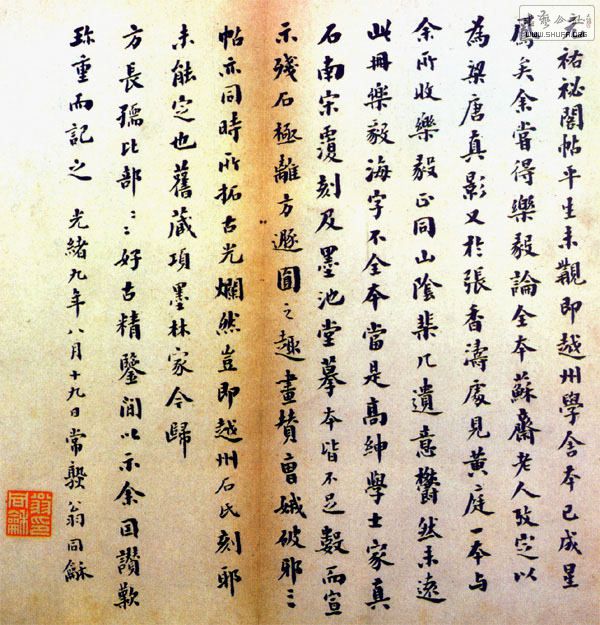 元祐祕閣帖平生未觀即越州學舍本已成星
鳳矣余嘗得樂毅論全本蘇齋老人攷定以
為梁唐真影又於張香濤處見黃庭一本与
余所收樂毅正同山陰棐几遺意欝然未遠
此冊樂毅海字不全本當是高紳學士家真
石南宋覆刻及墨池堂摹本皆不足數而宣
示殘石極離方遯圓之趣畫贊曹娥破邪三
帖亦同時所拓古光爛然豈即越州石氏刻耶
未能定也舊藏項墨林家今歸
方長孺比部比部好古精鑒閒以示余因讚歎
珍重而記之 光緒九年八月十九日常熟翁同龢
翁同龢印
書藝公社
WWW.SHUFA.ORG